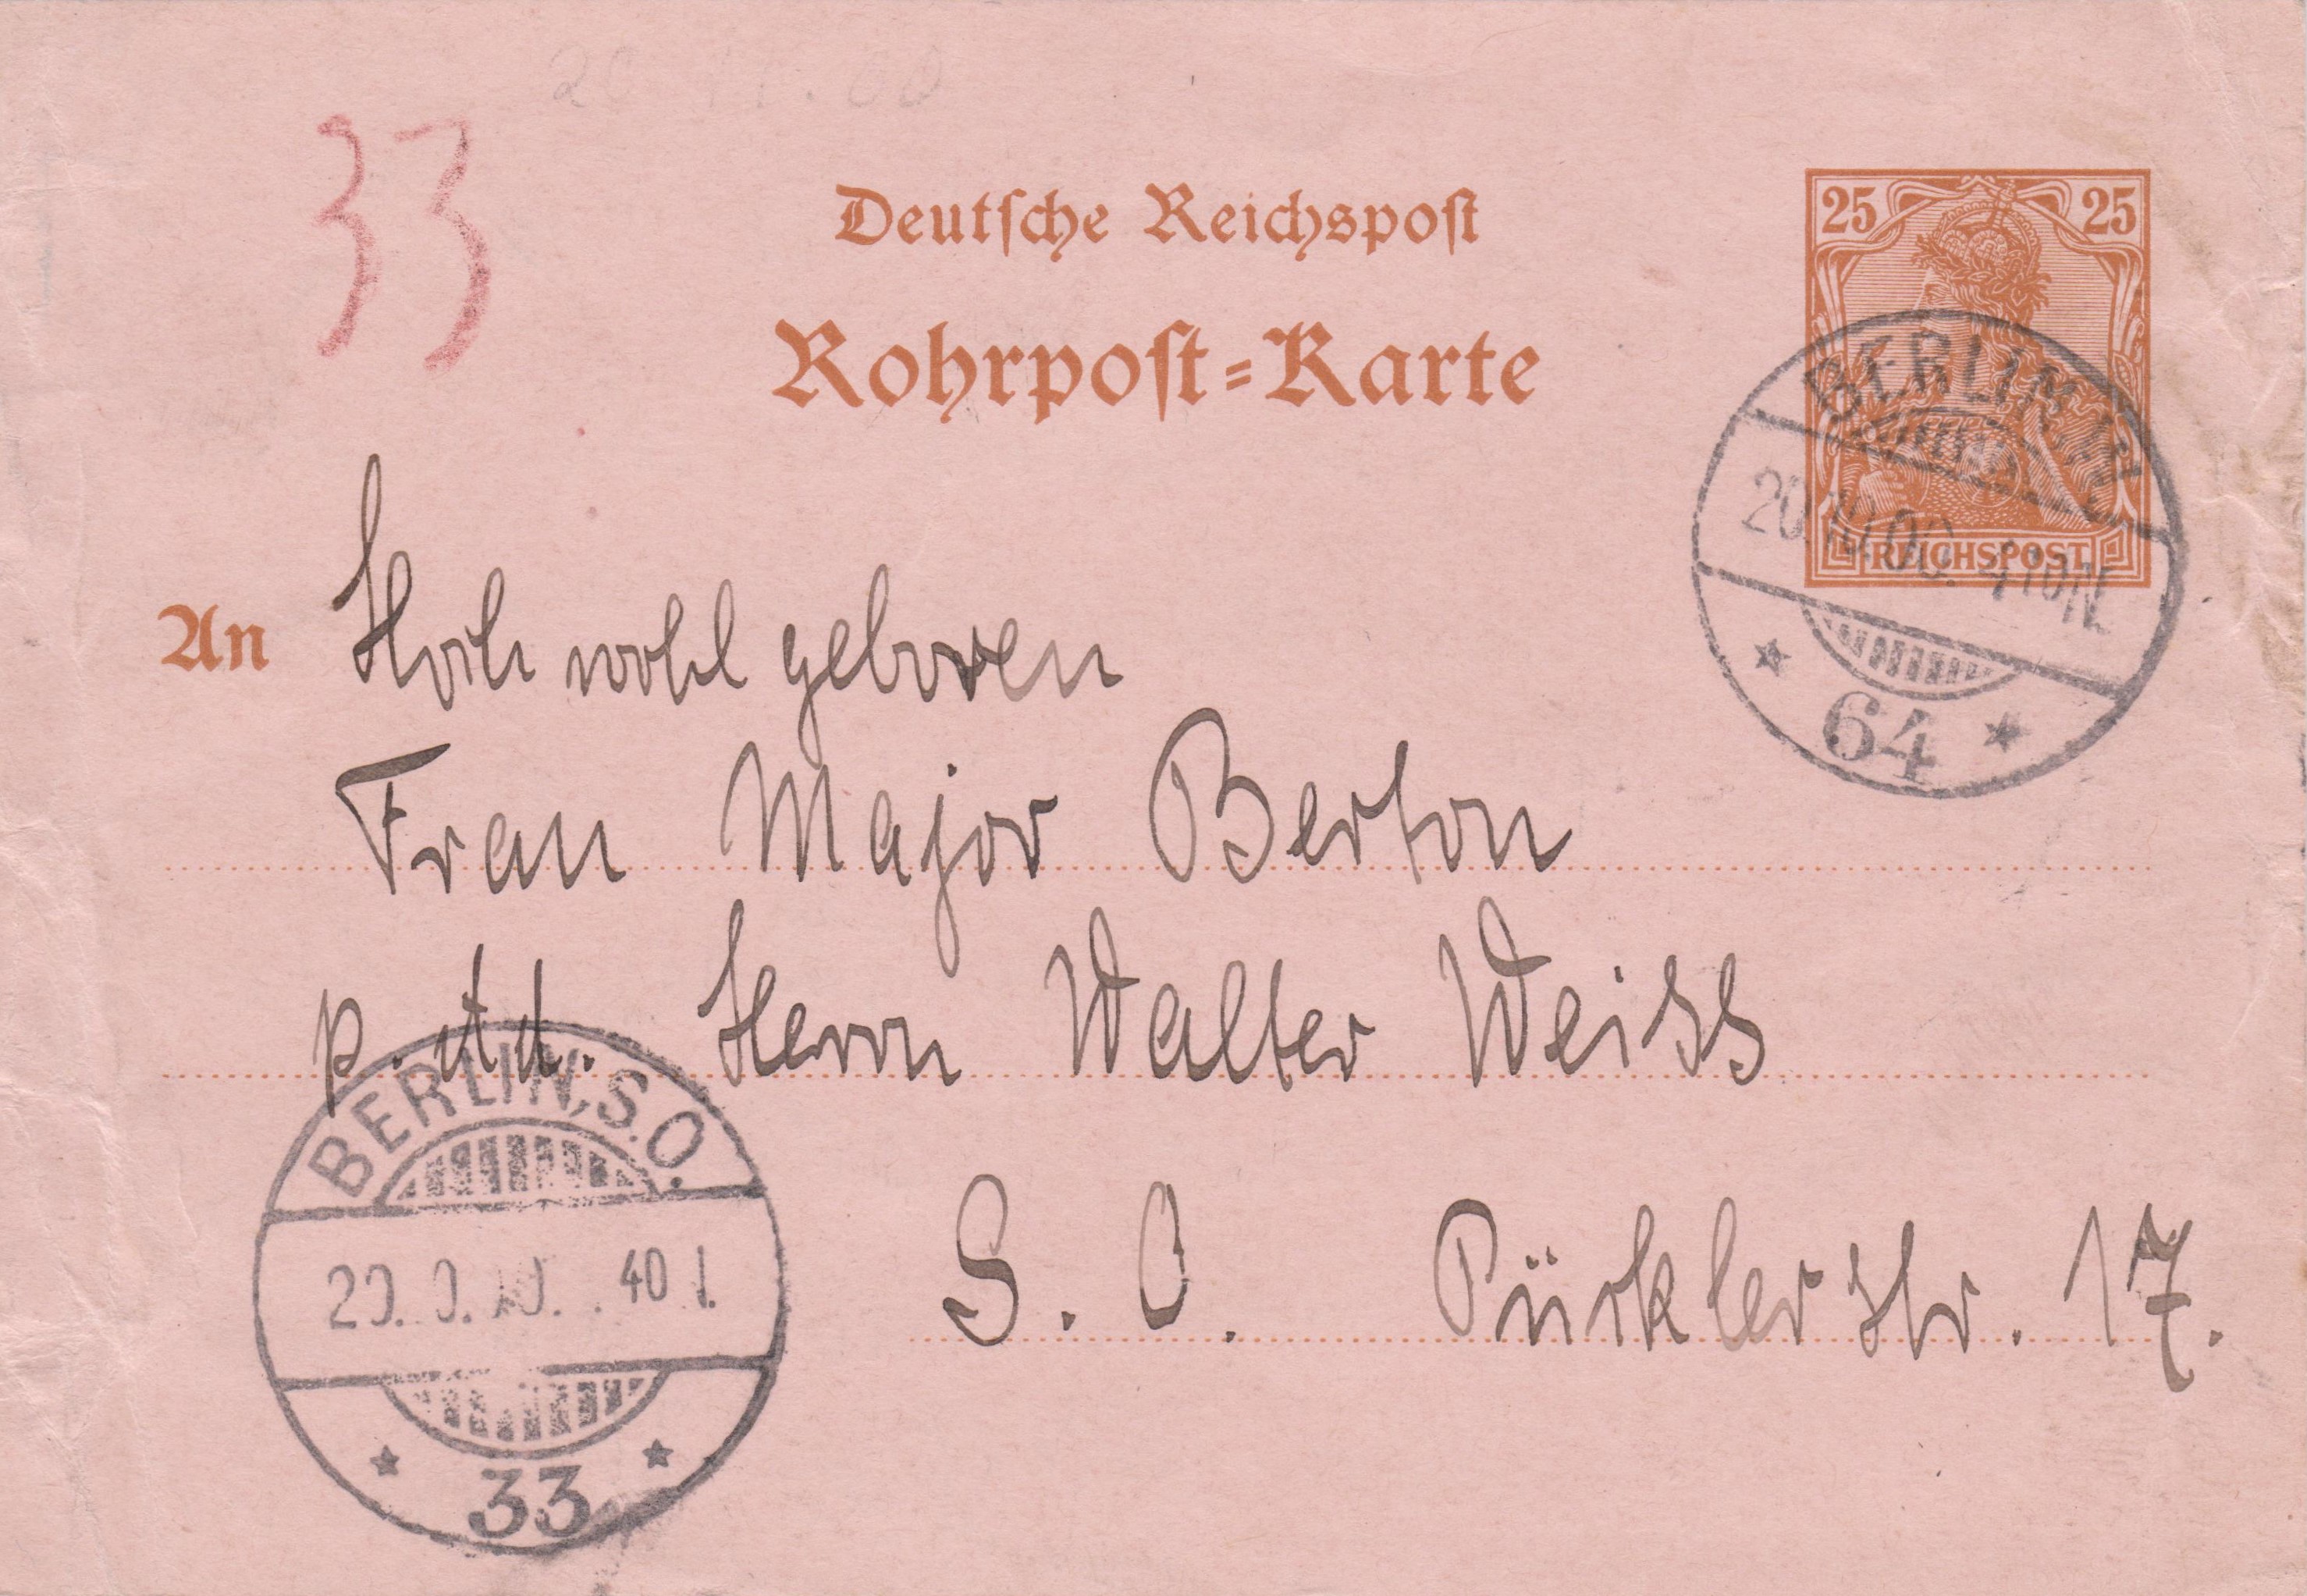 33
Deutsche Reichspost
Rohrpost-Karte
25 25
REICHSPOST
BERLIN
20.10.00. 4 10 N.
64
An Hochwohlgeboren
Frau Major Berton
p. Adr. Herrn Walter Weiss
S. O. Pücklerstr. 17.
BERLIN, S.O.
40
33